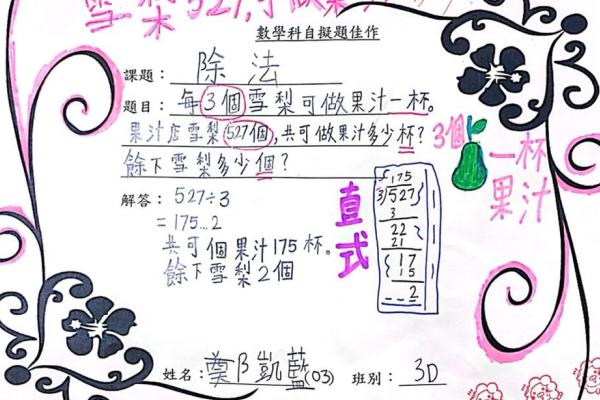 雪梨527,可做果
數學科自擬題佳作
課題: 除法
題目: 每3個雪梨可做果汁一杯。
果汁店雪梨527個,共可做果汁多少杯?
餘下雪梨多少個?
3個
一杯
果汁
解答: 527÷3
=175...2
共可個果汁175杯。
餘下雪梨2個
直式
175
3/527
3
22
21
17
15
2
姓名: 鄭凱藍(03) 班別: 3D